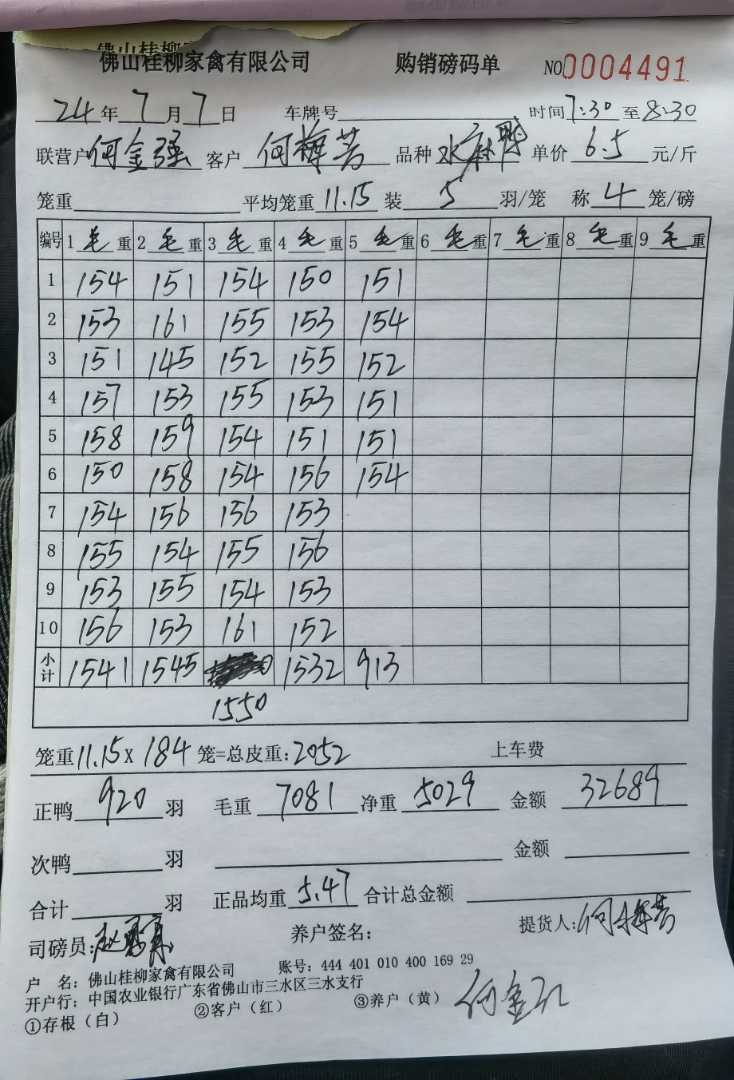 佛山桂柳家禽有限公司 购销磅码单 NO0004491
24年7月7日 车牌号 时间7:30至8:30
联营户何金强 客户 何梅芳 品种 水麻鸭 单价 6.5 元/斤
笼重 平均笼重 11.15 装 5 羽/笼 称 4 笼/磅
编号 1 毛 重 2 毛 重 3 毛 重 4 毛 重 5 毛 重 6 毛 重 7 毛 重 8 毛 重 9 毛 重
1 154 151 154 150 151
2 153 161 155 153 154
3 151 145 152 155 152
4 157 153 155 153 151
5 158 159 154 151 151
6 150 158 154 156 154
7 154 156 156 153
8 155 154 155 156
9 153 155 154 153
10 156 153 161 152
小计 1541 1545 1532 913
1550
笼重11.15×184笼=总皮重:2052 上车费
正鸭 920 羽 毛重 7081 净重 5029 金额 32689
次鸭 羽 金额
合计 羽 正品均重 5.47 合计总金额
司磅员: 养户签名: 提货人:何梅芳
户 名:佛山桂柳家禽有限公司 账号:444 401 010 400 169 29
开户行:中国农业银行广东省佛山市三水区三水支行
①存根(白) ②客户(红) ③养户(黄)